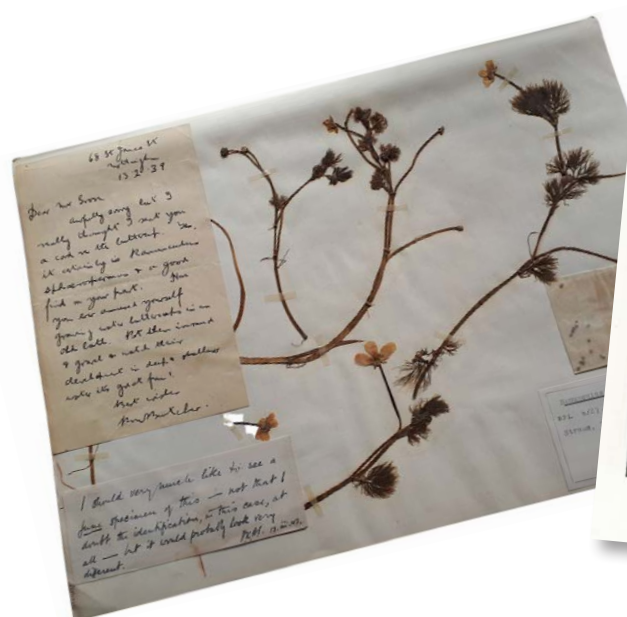 68 St James St
Nottingham
13.2.39
Dear Mr
awfully sorry but I
really thought I sent you
a card re the buttercup. Yes,
it certainly is Ranunculus
sphaerospermus & a good
find on your part. Have
you ever amused yourself
growing water buttercups in an
old bath. Pot them in mud
& gravel & watch their
development in deep & shallow
water its great fun!
Best wishes
I should very much like to see a
June specimen of this — not that I
doubt the identification, in this case, at
all — but it would probably look very
different.